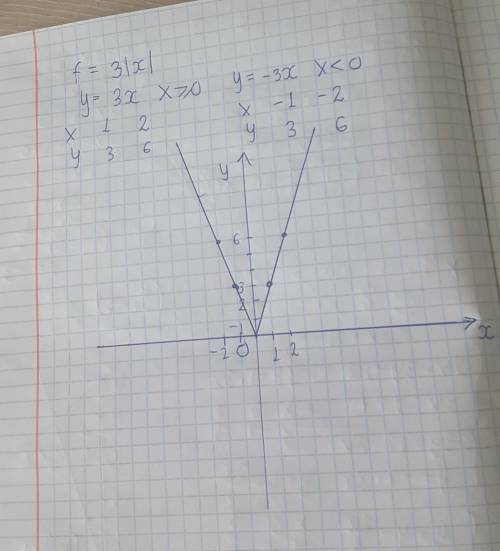 f = 3|x|
y = 3x x ⩾ 0
x 1 2
y 3 6
y = -3x x < 0
x -1 -2
y 3 6
y
6
3
2
-1
-2 0 1 2
x